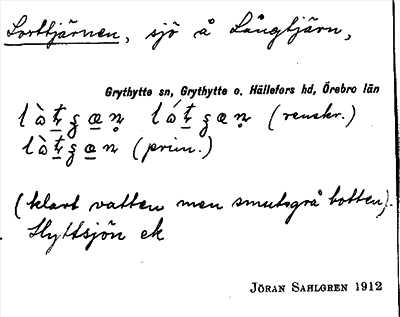 Lorttjärnen, sjö å Långtjärn,
Grythytte sn, Grythytte o. Hällefors hd, Örebro län
(renskr.)
(prim.)
(klart vatten men smutsgrå botten).
Hyttsjön ek
JÖRAN SAHLGREN 1912